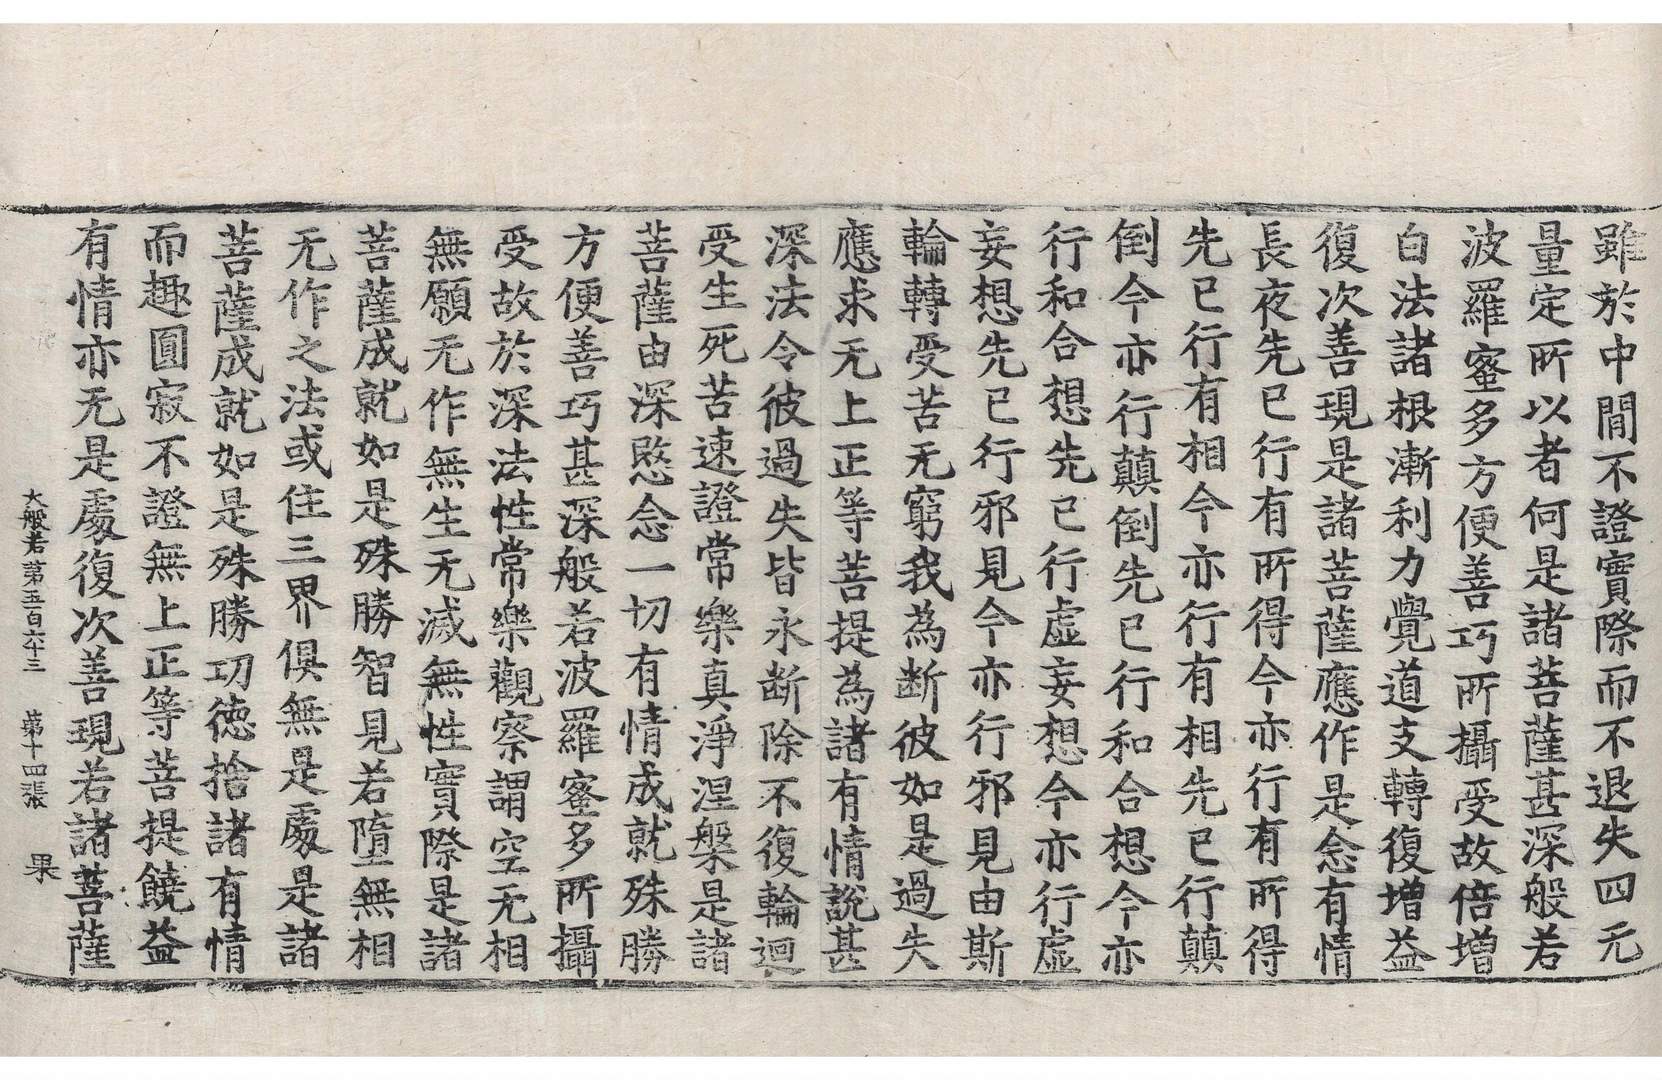 雖於中間不證實際而不退失四无
量定所以者何是諸菩薩甚深般若
波羅蜜多方便善巧所攝受故倍增
白法諸根漸利力覺道支轉復增益
復次善現是諸菩薩應作是念有情
長夜先已行有所得今亦行有所得
先已行有相今亦行有相先已行顛
倒今亦行顛倒先已行和合想今亦
行和合想先已行虛妄想今亦行虛
妄想先已行邪見今亦行邪見由斯
輪轉受苦无窮我為斷彼如是過失
應求无上正等菩提為諸有情說甚
深法令彼過失皆永斷除不復輪迴
受生死苦速證常樂真淨涅槃是諸
菩薩由深愍念一切有情成就殊勝
方便善巧甚深般若波羅蜜多所攝
受故於深法性常樂觀察謂空无相
無願无作無生无滅無性實際是諸
菩薩成就如是殊勝智見若墮無相
无作之法或住三界俱無是處是諸
菩薩成就如是殊勝功德捨諸有情
而趣圓寂不證無上正等菩提饒益
有情亦无是處復次善現若諸菩薩
大般若第五百六十三 第十四張 果